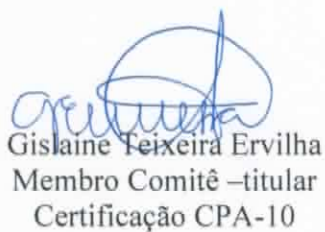 Gislaine Teixeira Ervilha
Membro Comitê –titular
Certificação CPA-10